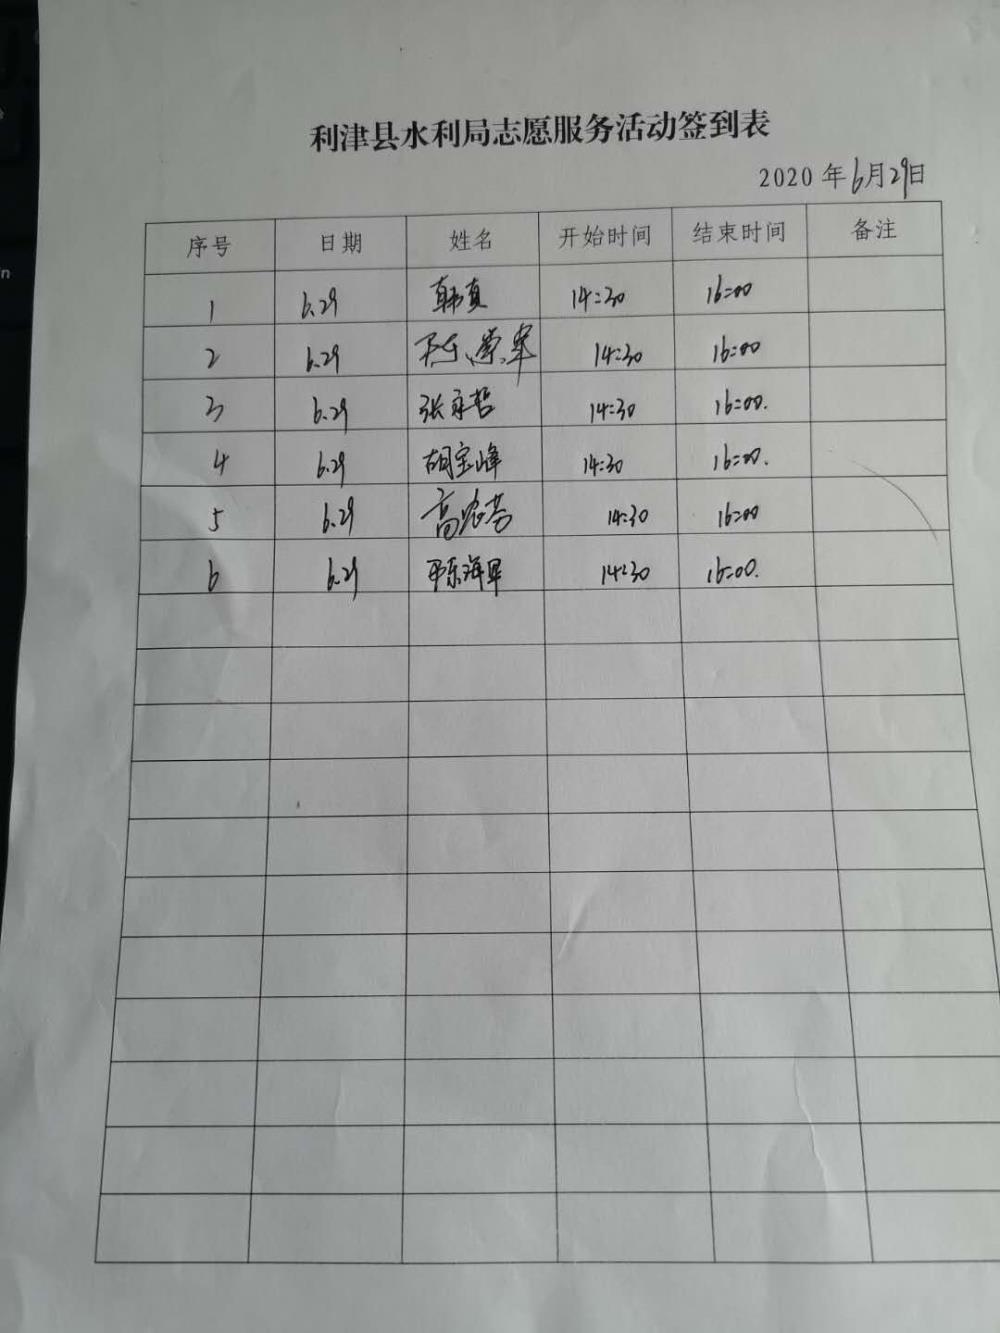 利津县水利局志愿服务活动签到表
2020 年 6月29日
序号 日期 姓名 开始时间 结束时间 备注
1 6.29 韩真 14:30 16:00
2 6.29 14:30 16:00
3 6.29 张永哲 14:30 16:00.
4 6.29 胡宝峰 14:30 16:00.
5 6.29 高 14:30 16:00
6 6.29 14:30 16:00.